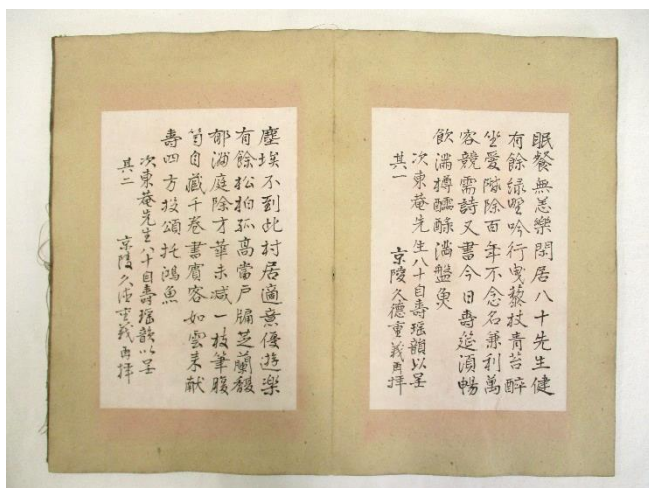 眠餐無恙樂閑居八十先生健
有餘緑野吟行曳藜杖青苔醉
坐愛階除百年不念名兼利萬
客競需詩又書今日壽筵須暢
飲滿樽醽醁滿盤魚
次東菴先生八十自壽瑶韻以呈
其一 京陵久德重義再拜
塵埃不到此村居適意優遊樂
有餘松柏孤高當戶牖芝蘭馥
郁滿庭除才華未减一枝筆腹
笥自藏千卷書賓客如雲来献
壽四方投頌托鴻魚
次東菴先生八十自壽瑶韻以呈
其二 京陵久德重義再拜